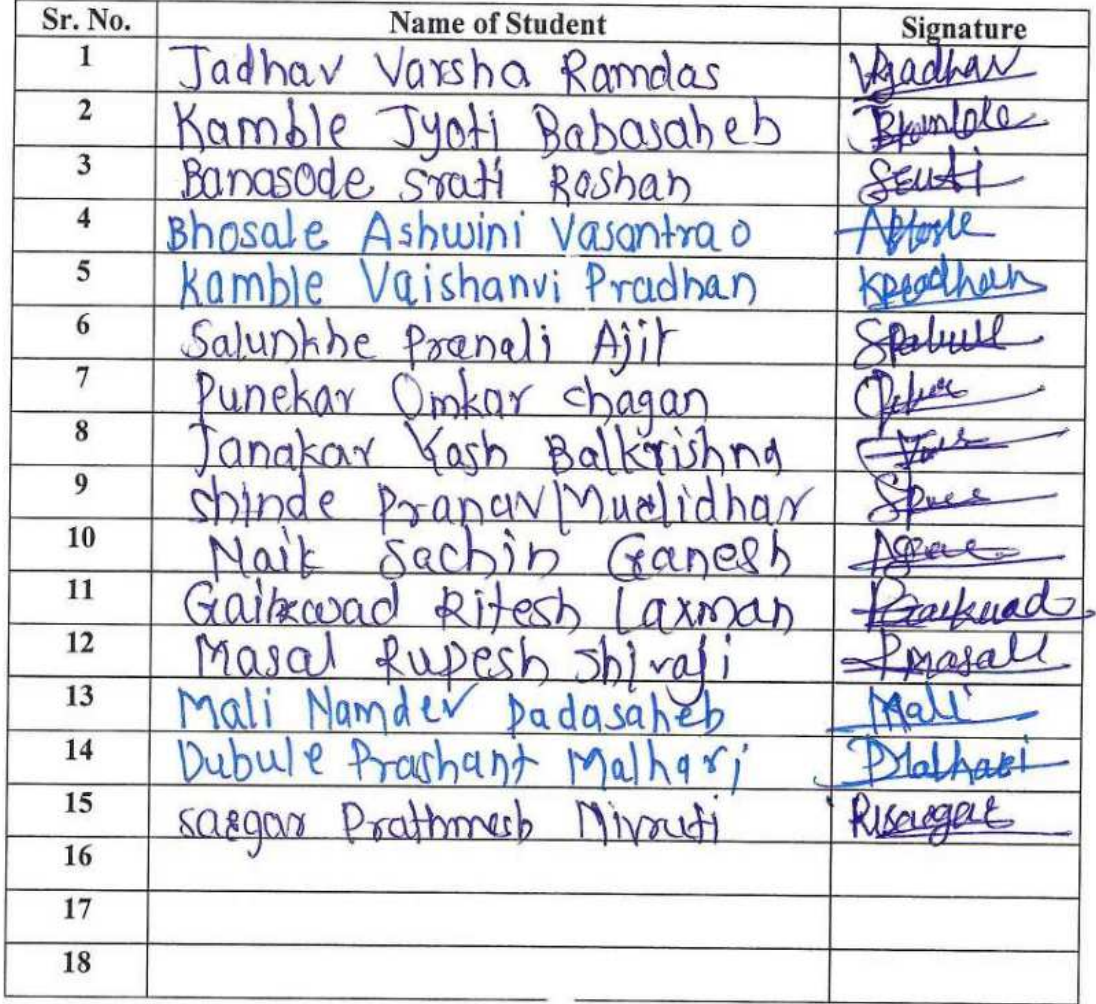 Sr. No. Name of Student Signature
1 Jadhav Varsha Ramdas
2 Kamble Jyoti Babasaheb
3 Banasode Srati Roshan
4 Bhosale Ashwini Vasantrao
5 Kamble Vaishanvi Pradhan Kpradhan
6 Salunkhe Pranali Ajit
7 Punekar Omkar Chagan
8 Janakar Yash Balkrishna
9 Shinde Pranav Muralidhar
10 Naik Sachin Ganesh
11 Gaikwad Ritesh Laxman
12 Masal Rupesh Shivaji
13 Mali Namdev Dadasaheb Mali
14 Dubule Prashant Malhari
15 Sargar Prathmesh Nivruti
16
17
18